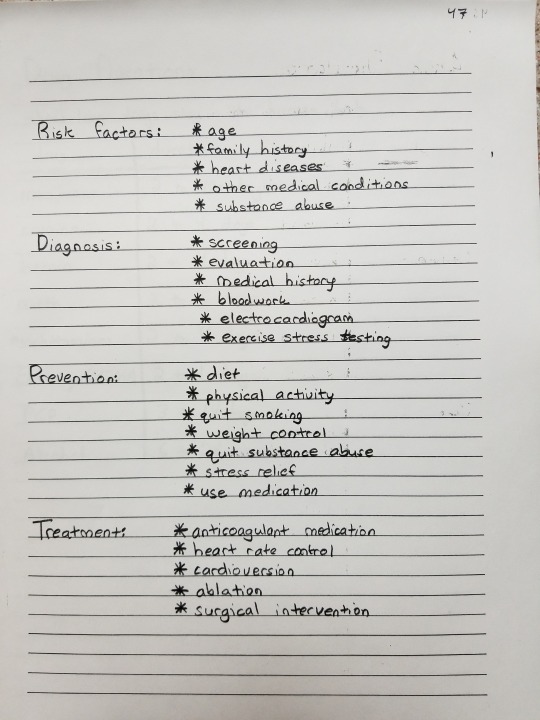 47
Risk factors: * age
* family history
* heart diseases
* other medical conditions
* substance abuse
Diagnosis: * screening
* evaluation
* medical history
* bloodwork
* electrocardiogram
* exercise stress testing
Prevention: * diet
* physical activity
* quit smoking
* weight control
* quit substance abuse
* stress relief
* use medication
Treatment: * anticoagulant medication
* heart rate control
* cardioversion
* ablation
* surgical intervention